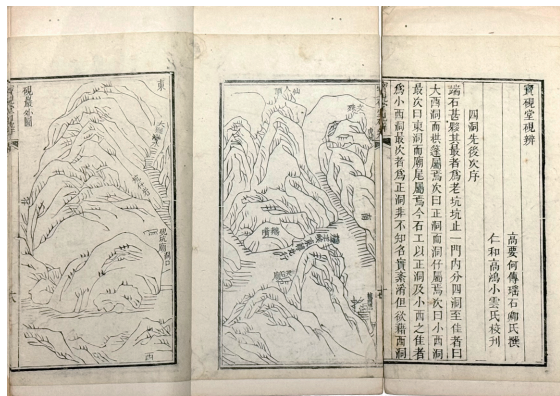 寶硯堂硯辨
高要何傳瑤石卿氏撰
仁和高鴻小雲氏校刊
四洞先後次序
端石甚夥其最者為老坑坑止一門內分四洞至佳者曰
大西洞而拱篷屬焉次曰正洞而洞仔屬焉次曰小西洞
最次曰東洞而廟尾屬焉今石工以正洞及小西之佳者
為小西洞最次者為正洞非不知名實紊淆但欲藉西洞
仙人頂
東
硯坑廟
西
硯巖外圖